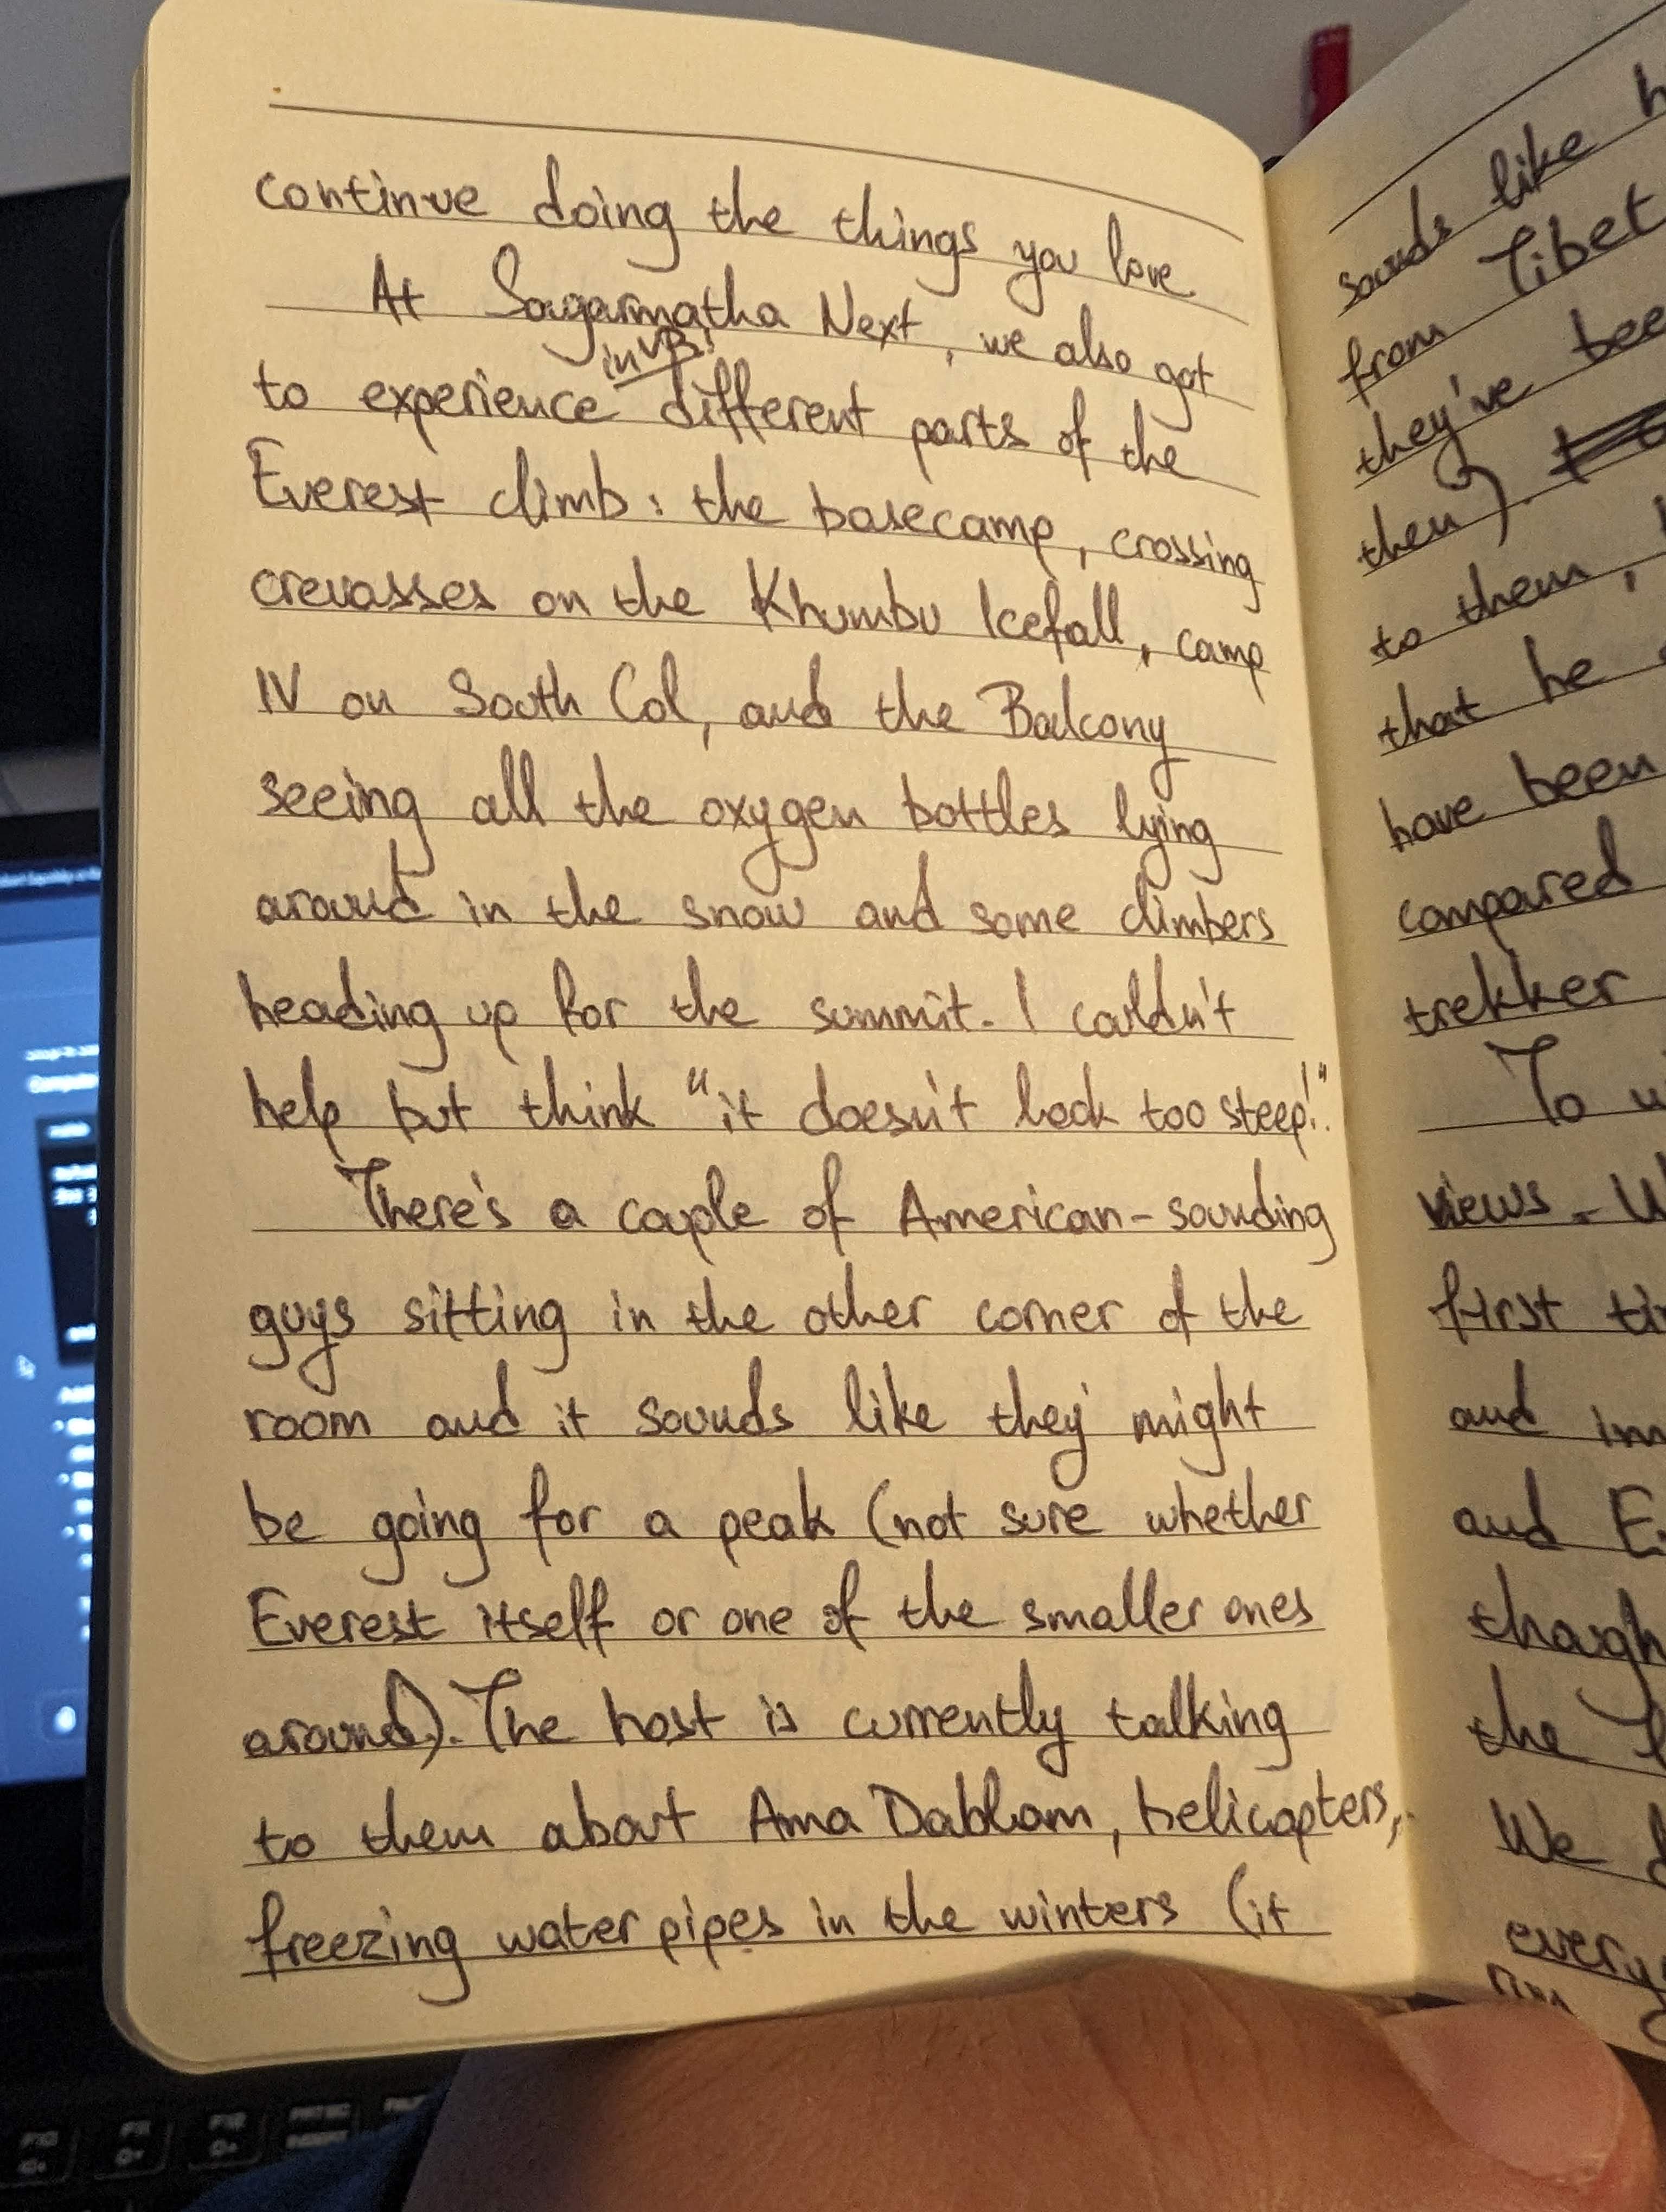 continue doing the things you love.
At Sagarmatha Next, we also got
in VR!
to experience different parts of the
Everest climb: the basecamp, crossing
crevasses on the Khumbu Icefall, camp
IV on South Col, and the Balcony
seeing all the oxygen bottles lying
around in the snow and some climbers
heading up for the summit. I couldn't
help but think "it doesn't look too steep!".
There's a couple of American-sounding
guys sitting in the other corner of the
room and it sounds like they might
be going for a peak (not sure whether
Everest itself or one of the smaller ones
around). The host is currently talking
to them about Ama Dablam, helicopters,
freezing water pipes in the winters (it
sounds like
Tibet
from
they've
then).
to them,
that he
have been
compared
trekker
To
views.
first
and
and
the
We